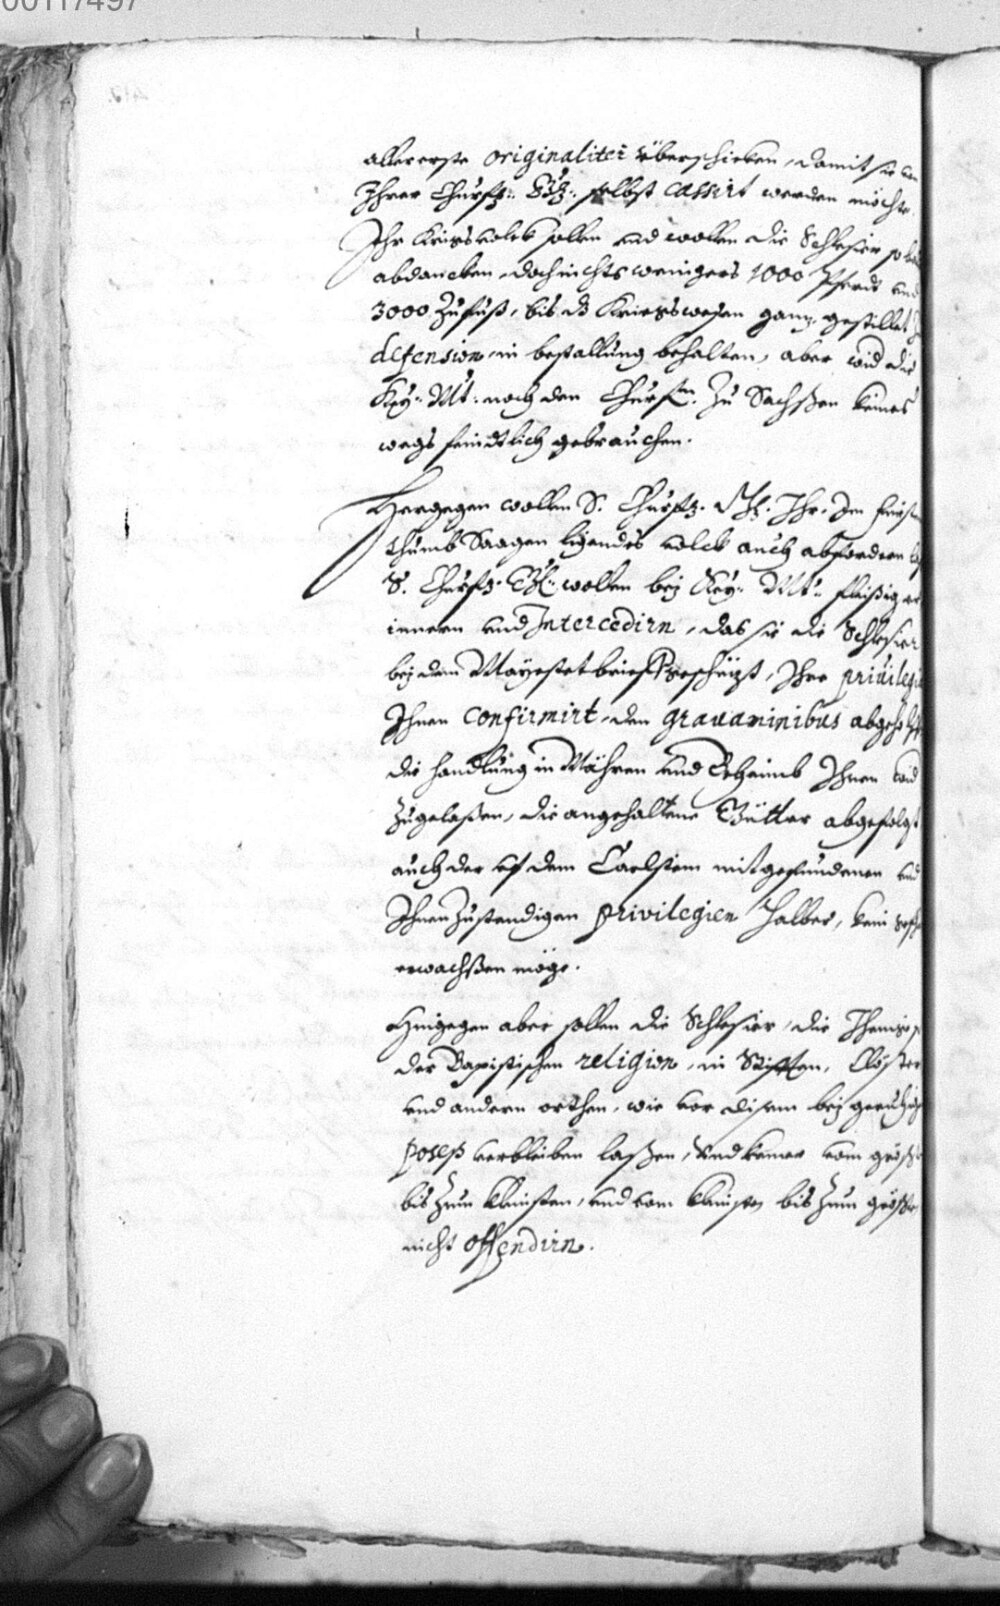 00117497
allererste originaliter überschicken, damit sie von
Ihrer Churfl: Gn: selbst cassirt werden möchte.
Ihr Kriegsvolck sollen und wollen die Schlesier so
abdancken, doch nichts wenigers 1000 Pferdt und
3000 Zufuß, bis dz Kriegswesen gantz gestillet
defension in bestallung behalten, aber wid die
Key: Mt: noch den Churfn. Zu Sachßen keines
wegs feindtlich gebrauchen.
Hergegen wollen S. Churfl: Ihr, Im fürsten
thumb Saagen ligendes volck auch abfordern
S. Churfl: wollen bey Key: Mt: fleißig er
innern und Intercedirn, das sie die Schlesier
bey dem Mayestetbrieff geschüzt, Ihre privilegi
Ihnen confirmirt, den gravaminibus abgeholf
die handlung in Mähren und Beheimb Ihnen wid
Zugelaßen, die angehaltene Gütter abgefolgt
auch der uf dem Carlstein mitgefundenen und
Ihnen Zustendigen privilegien halber, kein
erwachßen möge.
Hingegen aber sollen die Schlesier, die Ihenige
der Papistischen religion, in Stifften, Clöster
und andern orthen, wie vor disem bey geruhig
poseß verbleiben laßen, und keiner vom größ
bis Zum kleinsten, und vom kleinsten bis Zum größe
nicht offendirn.